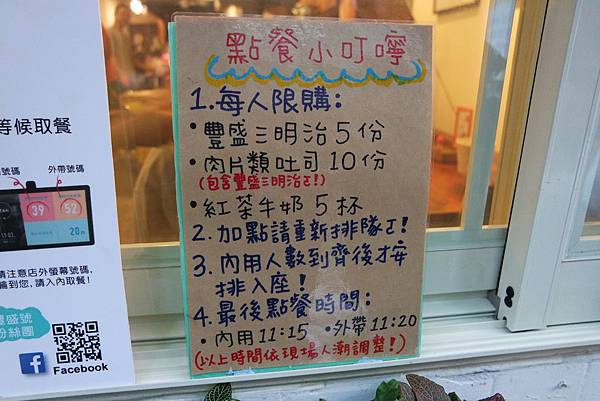 點餐小叮嚀
1.每人限購:
•豐盛三明治5份
•肉片類吐司10份
(包含豐盛三明治ㄛ!)
•紅茶牛奶5杯
2.加點請重新排隊ㄛ!
3.內用人數到齊後才安
排入座!
4.最後點餐時間:
•內用11:15 •外帶11:20
(以上時間依現場人潮調整!)
等候取餐
號碼 外帶號碼
39 52
20
請注意店外螢幕號碼,
輪到您,請入內取餐!
豐盛號
粉絲團
Facebook